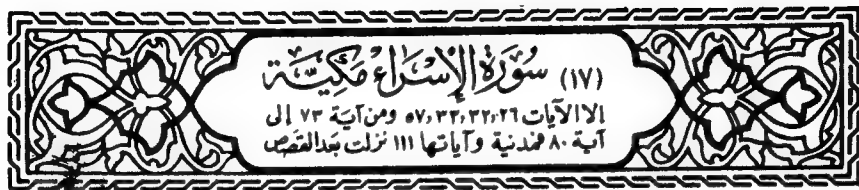 (١٧) سُورَةُ الإِسْرَاءِ مَكِيَّة
إلا الآيات ٢٦، ٣٢، ٣٣، ٥٧ ومن آية ٧٣ إلى
آية ٨٠ فمدنية وآياتها ١١١ نزلت بعد القصص